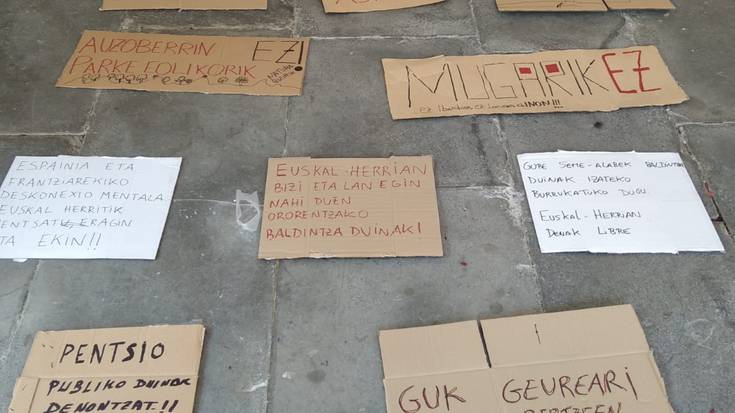 AUZOBERRIN EZ!
PARKE EOLIKORIK
MUGARIK EZ
ESPAINIA ETA
FRANTZIAREKIKO
DESKONEXIO MENTALA
EUSKAL HERRITIK
PENTSATU, ERAGIN
ETA EKIN!!
EUSKAL-HERRIAN
BIZI ETA LAN EGIN
NAHI DUEN
ORORENTZAKO
BALDINTZA DUINAK!
GURE SEME-ALABEK BALDINTZA
DUINAK IZATEKO
BURRUKATUKO DUGU.
EUSKAL-HERRIAN
DENAK LIBRE
PENTSIO
PUBLIKO DUINAK
DENONTZAT!!
GUK GEUREARI